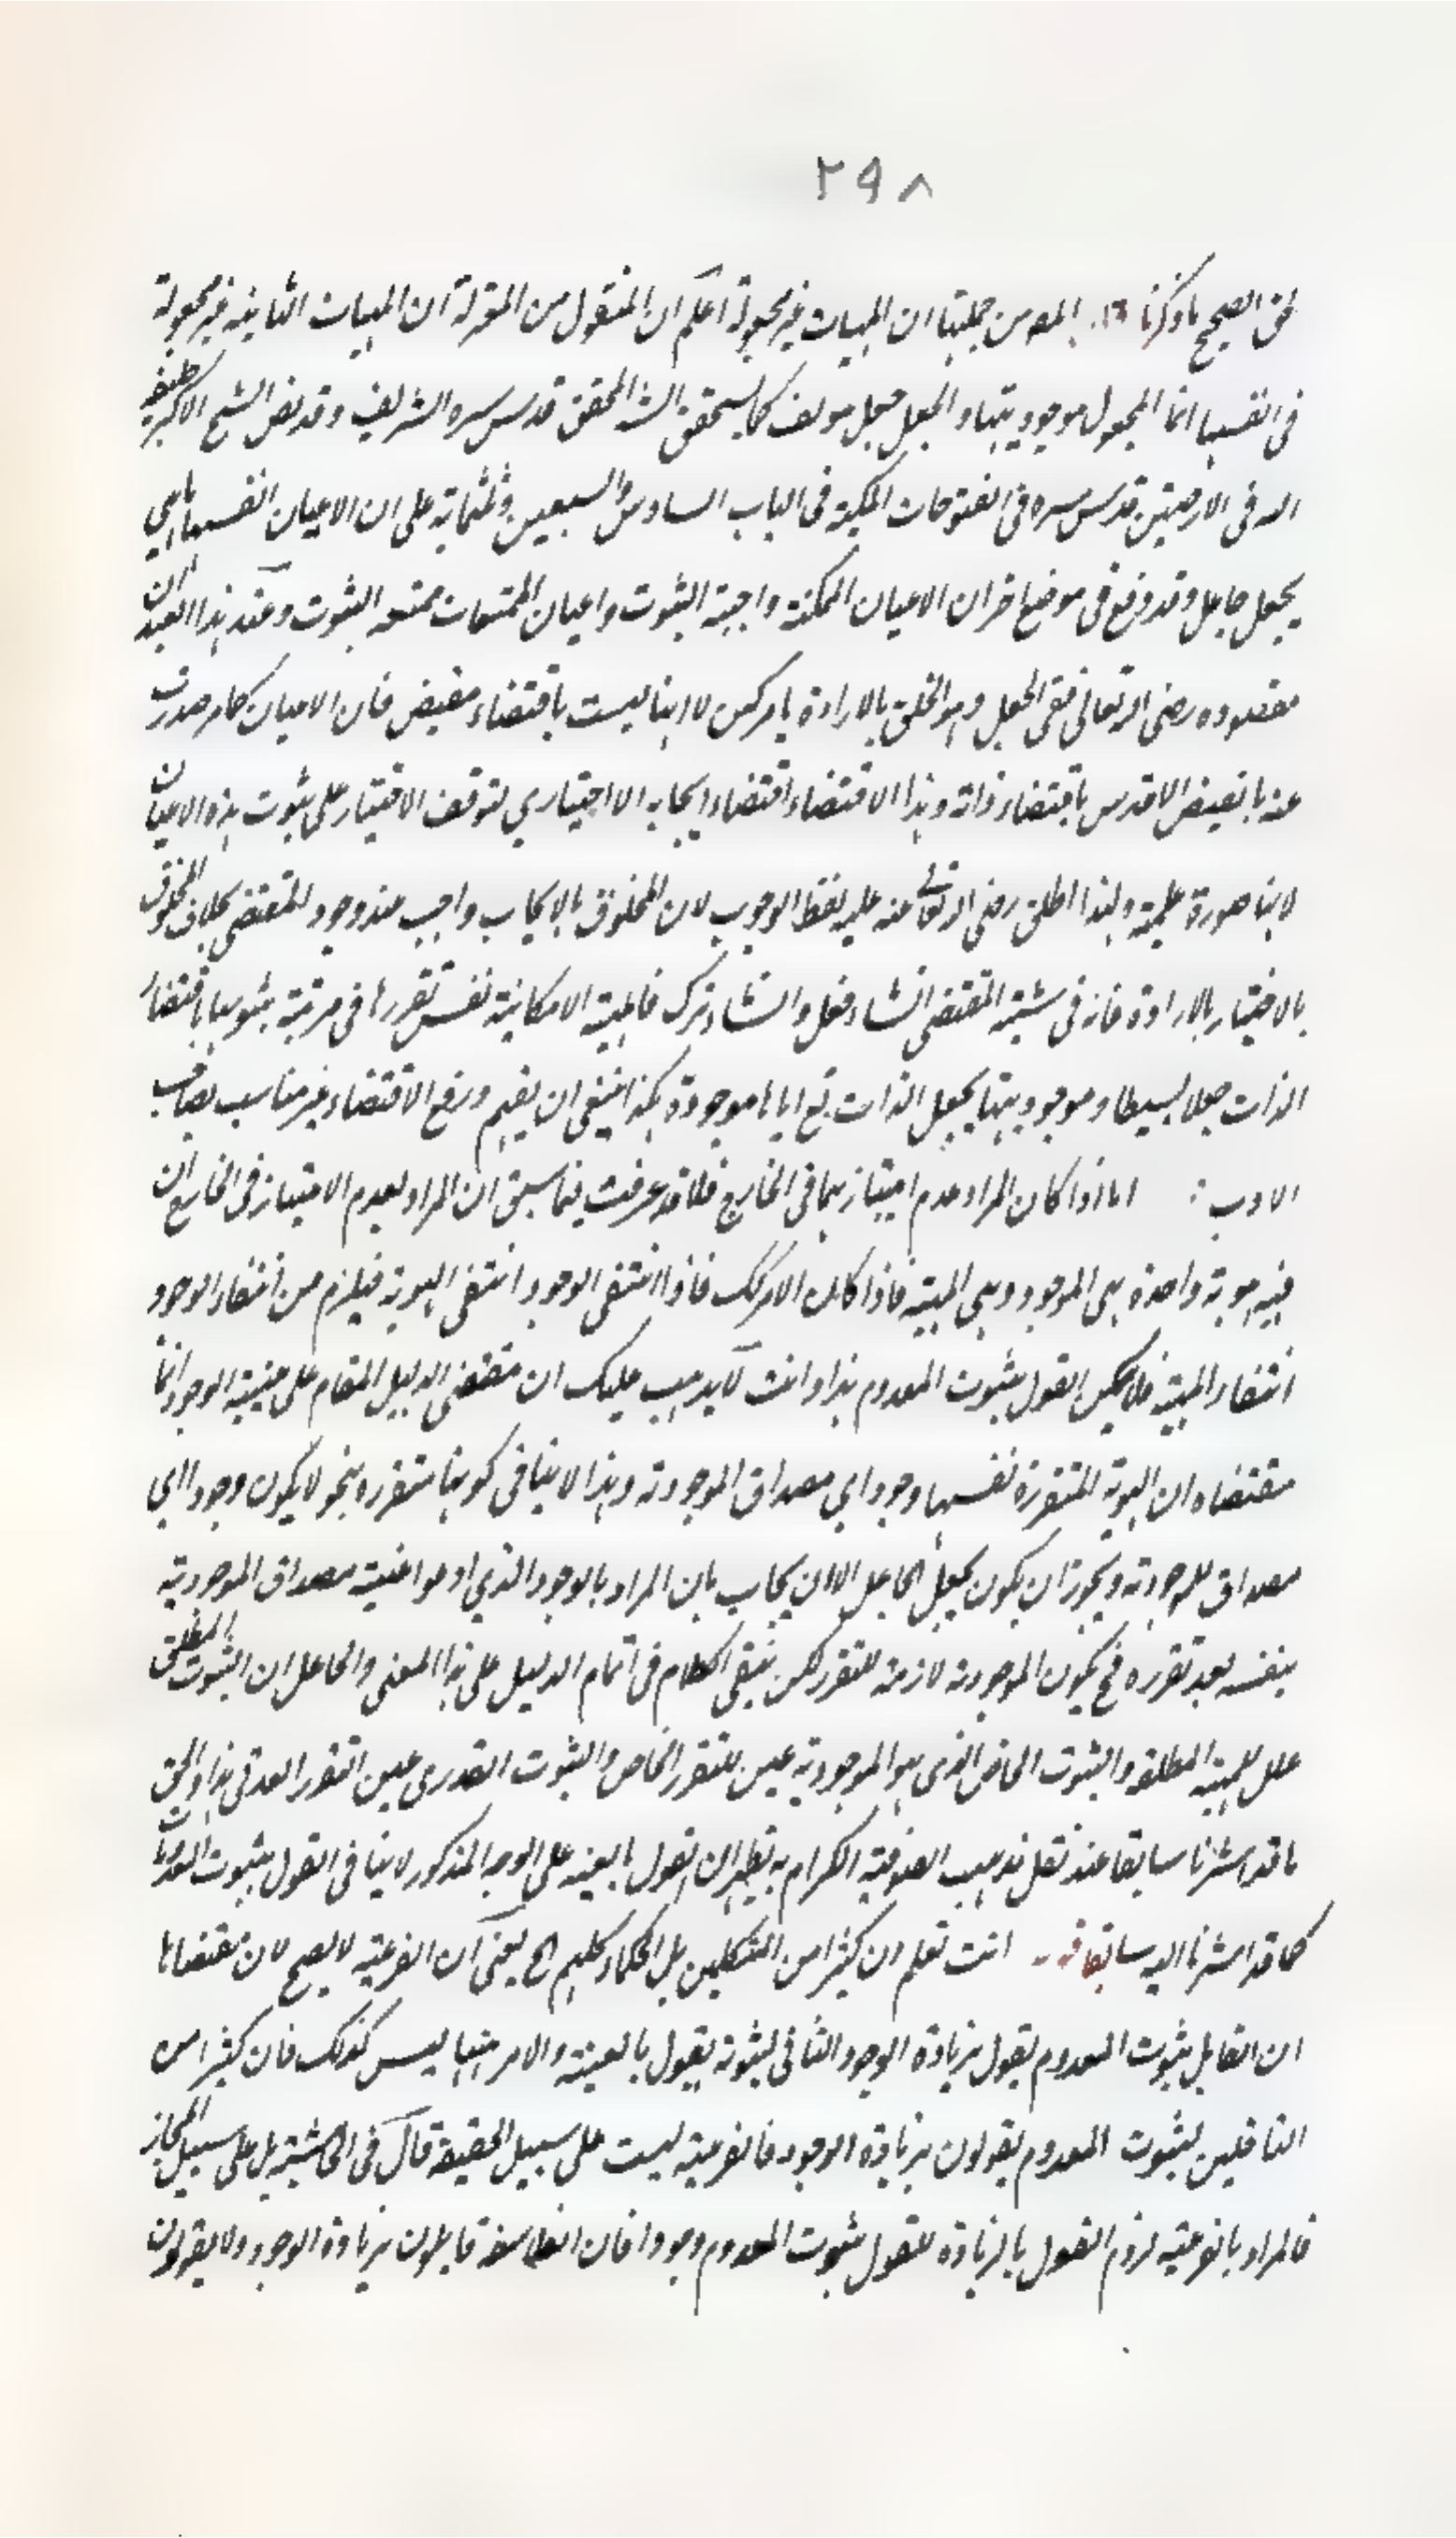 ٢٩٨
الصحيح ما ذكرنا ١٢ من جملتها ان المهيات غير مجعولة اعلم ان المنقول من المعتزلة ان المهيات الثابتة غير مجعولة
فى انفسها انما المجعول موجوديتها والجعل جعل مولف كما المحقق قدس سره الشريف وقد نص الشيخ الاكبر خليفة
الله فى الارضين قدس سره فى الفتوحات المكية فى الباب السادس والسبعين وثلثمائة على ان الاعيان انفسها ما هي
بجعل جاعل وقد وقع فى موضع اخر ان الاعيان الممكنة واجبة الثبوت واعيان الممتنعات ممتنعة الثبوت وعند هذا العبد ان
مقصوده رضى الله تعالى نفى الجعل وهو الخلق بالارادة بامر كن لا انها ليست باقتضاء مفيض فان الاعيان كلها صدرت
عنه بالفيض الاقدس باقتضاء ذاته وهذا الاقتضاء اقتضاء ايجابه لا اختياري لتوقف الاختيار على ثبوت هذه الاعيان
لانها صورة علمية ولهذا اطلق رضى الله تعالى عنه عليه لفظ الوجوب لان المخلوق بالايجاب واجب عند وجود المقتضى بخلاف المخلوق
بالاختيار بالارادة فانه فى مشية المقتضى انشاء فعل وانشاء ترك فالمهية الامكانية نفس تقررها فى مرتبة ثبوتها باقتضاء
الذات جعلا بسيطا وموجوديتها بجعل الذات تع اياها موجودة هكذا ينبغى ان يفهم ورفع الاقتضاء غير مناسب بصاحب
الادب : اما اذا كان المراد عدم امتيازهما فى الخارج فلا قد عرفت فيما سبق ان المراد بعدم الامتياز فى الخارج ان
فيه هوية واحدة هى الموجود وهى المهية فاذا كان الامر كك فاذا انتفى الوجود انتفى الهوية فيلزم من انتفاء الوجود
انتفاء المهية فلا يمكن القول بثبوت المعدوم هذا وانت لا يذهب عليك ان مقتضى الدليل المقام على عينية الوجود انما
مقتضاه ان الهوية المتقررة نفسها وجود اي مصداق الموجودية وهذا لا ينافى كونها متقررة بنحو لا يكون وجودا اي
مصداق للموجودية ويجوز ان يكون بجعل الجاعل الا ان يجاب بان المراد بالوجود الذي ادعوا عينية مصداق الموجودية
بنفسه بعد تقرره فح يكون الموجودية لازمة للتقرر لكن يبقى الكلام فى اتمام الدليل على هذا المعنى والحاصل ان الثبوت المطلق
للمهية المطلقة والثبوت الخاص الذى هو الموجودية عين للتقرر الخاص والثبوت عين التقرر هذا والحق
ما قد اشرنا سابقا عند نقل مذهب الصوفية الكرام به يظهر ان القول بالعينية على الوجه المذكور لا ينافى القول بثبوت المعدومات
كما قد اشرنا اليه سابقا انت تعلم ان كثيرا من المتكلمين بل الحكماء كلهم الخ يعنى ان الفرعية لا يصح لان مقتضاها
ان القايل بثبوت المعدوم يقول بزيادة الوجود النافى لثبوته يقول بالعينية والامر ليس كذلك فان كثيرا من
النافيين لثبوت المعدوم يقولون بزيادة الوجود فالفرعية ليست على سبيل الحقيقة قال فى الحاشية بل على سبيل المجاز
فالمراد بالفرعية لزوم القول بالزيادة للقول بثبوت المعدوم وجودا فان الفلاسفة قايلون بزيادة الوجود ولا يقولون